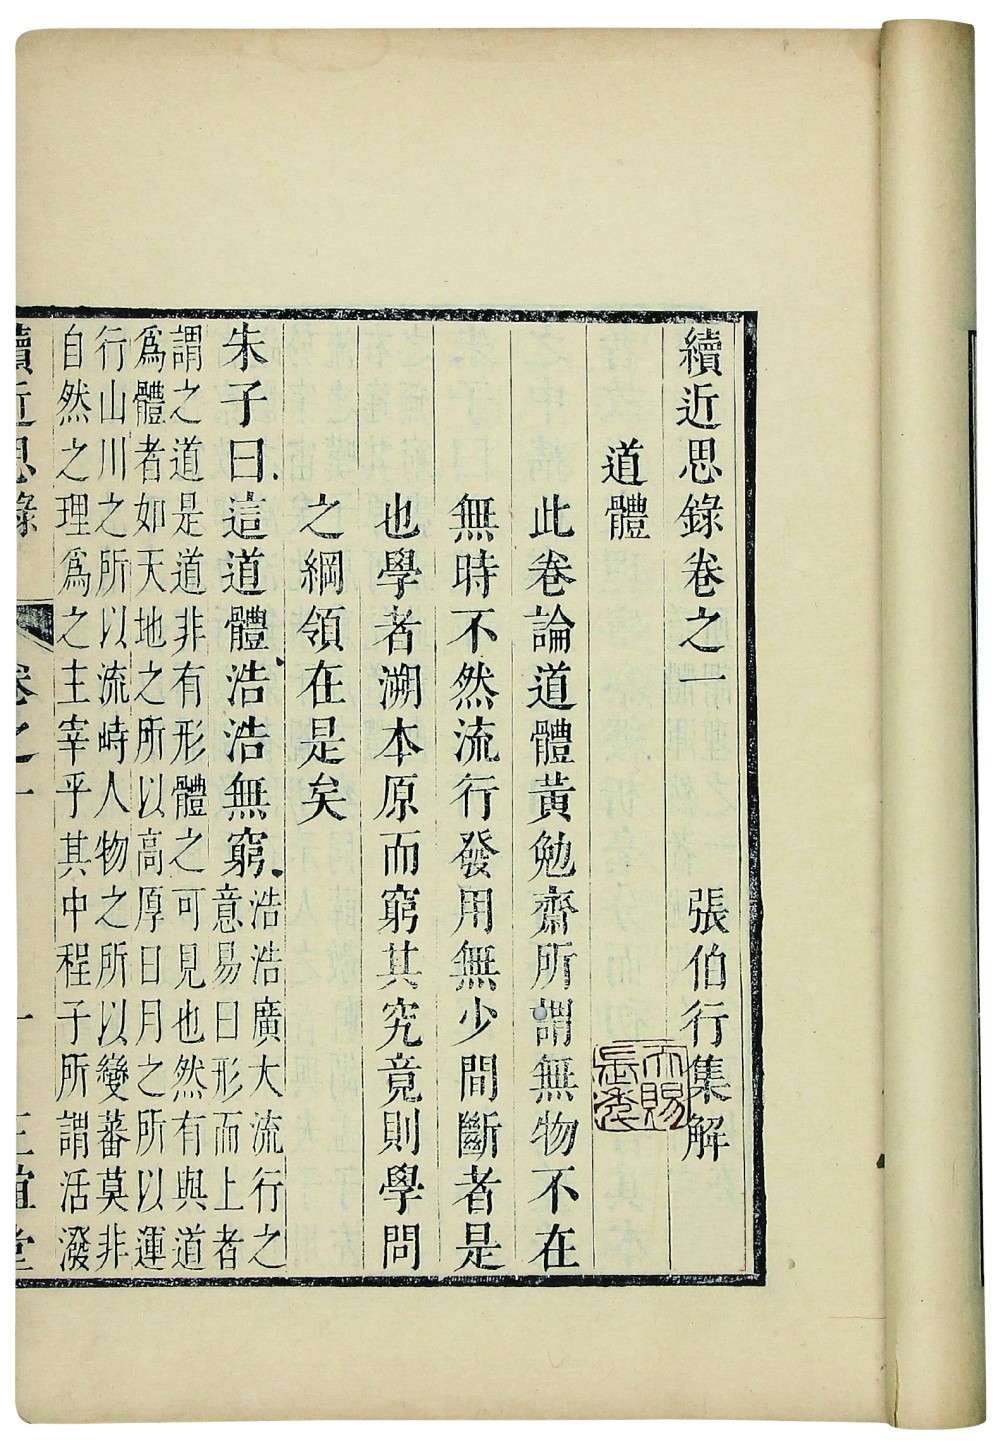 續近思錄卷之一 張伯行集解
道體
此卷論道體黃勉齋所謂無物不在
無時不然流行發用無少間斷者是
也學者溯本原而窮其究竟則學問
之綱領在是矣
朱子曰這道體浩浩無窮
浩浩廣大流行之
意易曰形而上者
謂之道是道非有形體之可見也然有與道
爲體者如天地之所以高厚日月之所以運
行山川之所以流峙人物之所以變蕃莫非
自然之理爲之主宰乎其中程子所謂活潑
續近思錄 卷之一 一 正誼堂
天賜